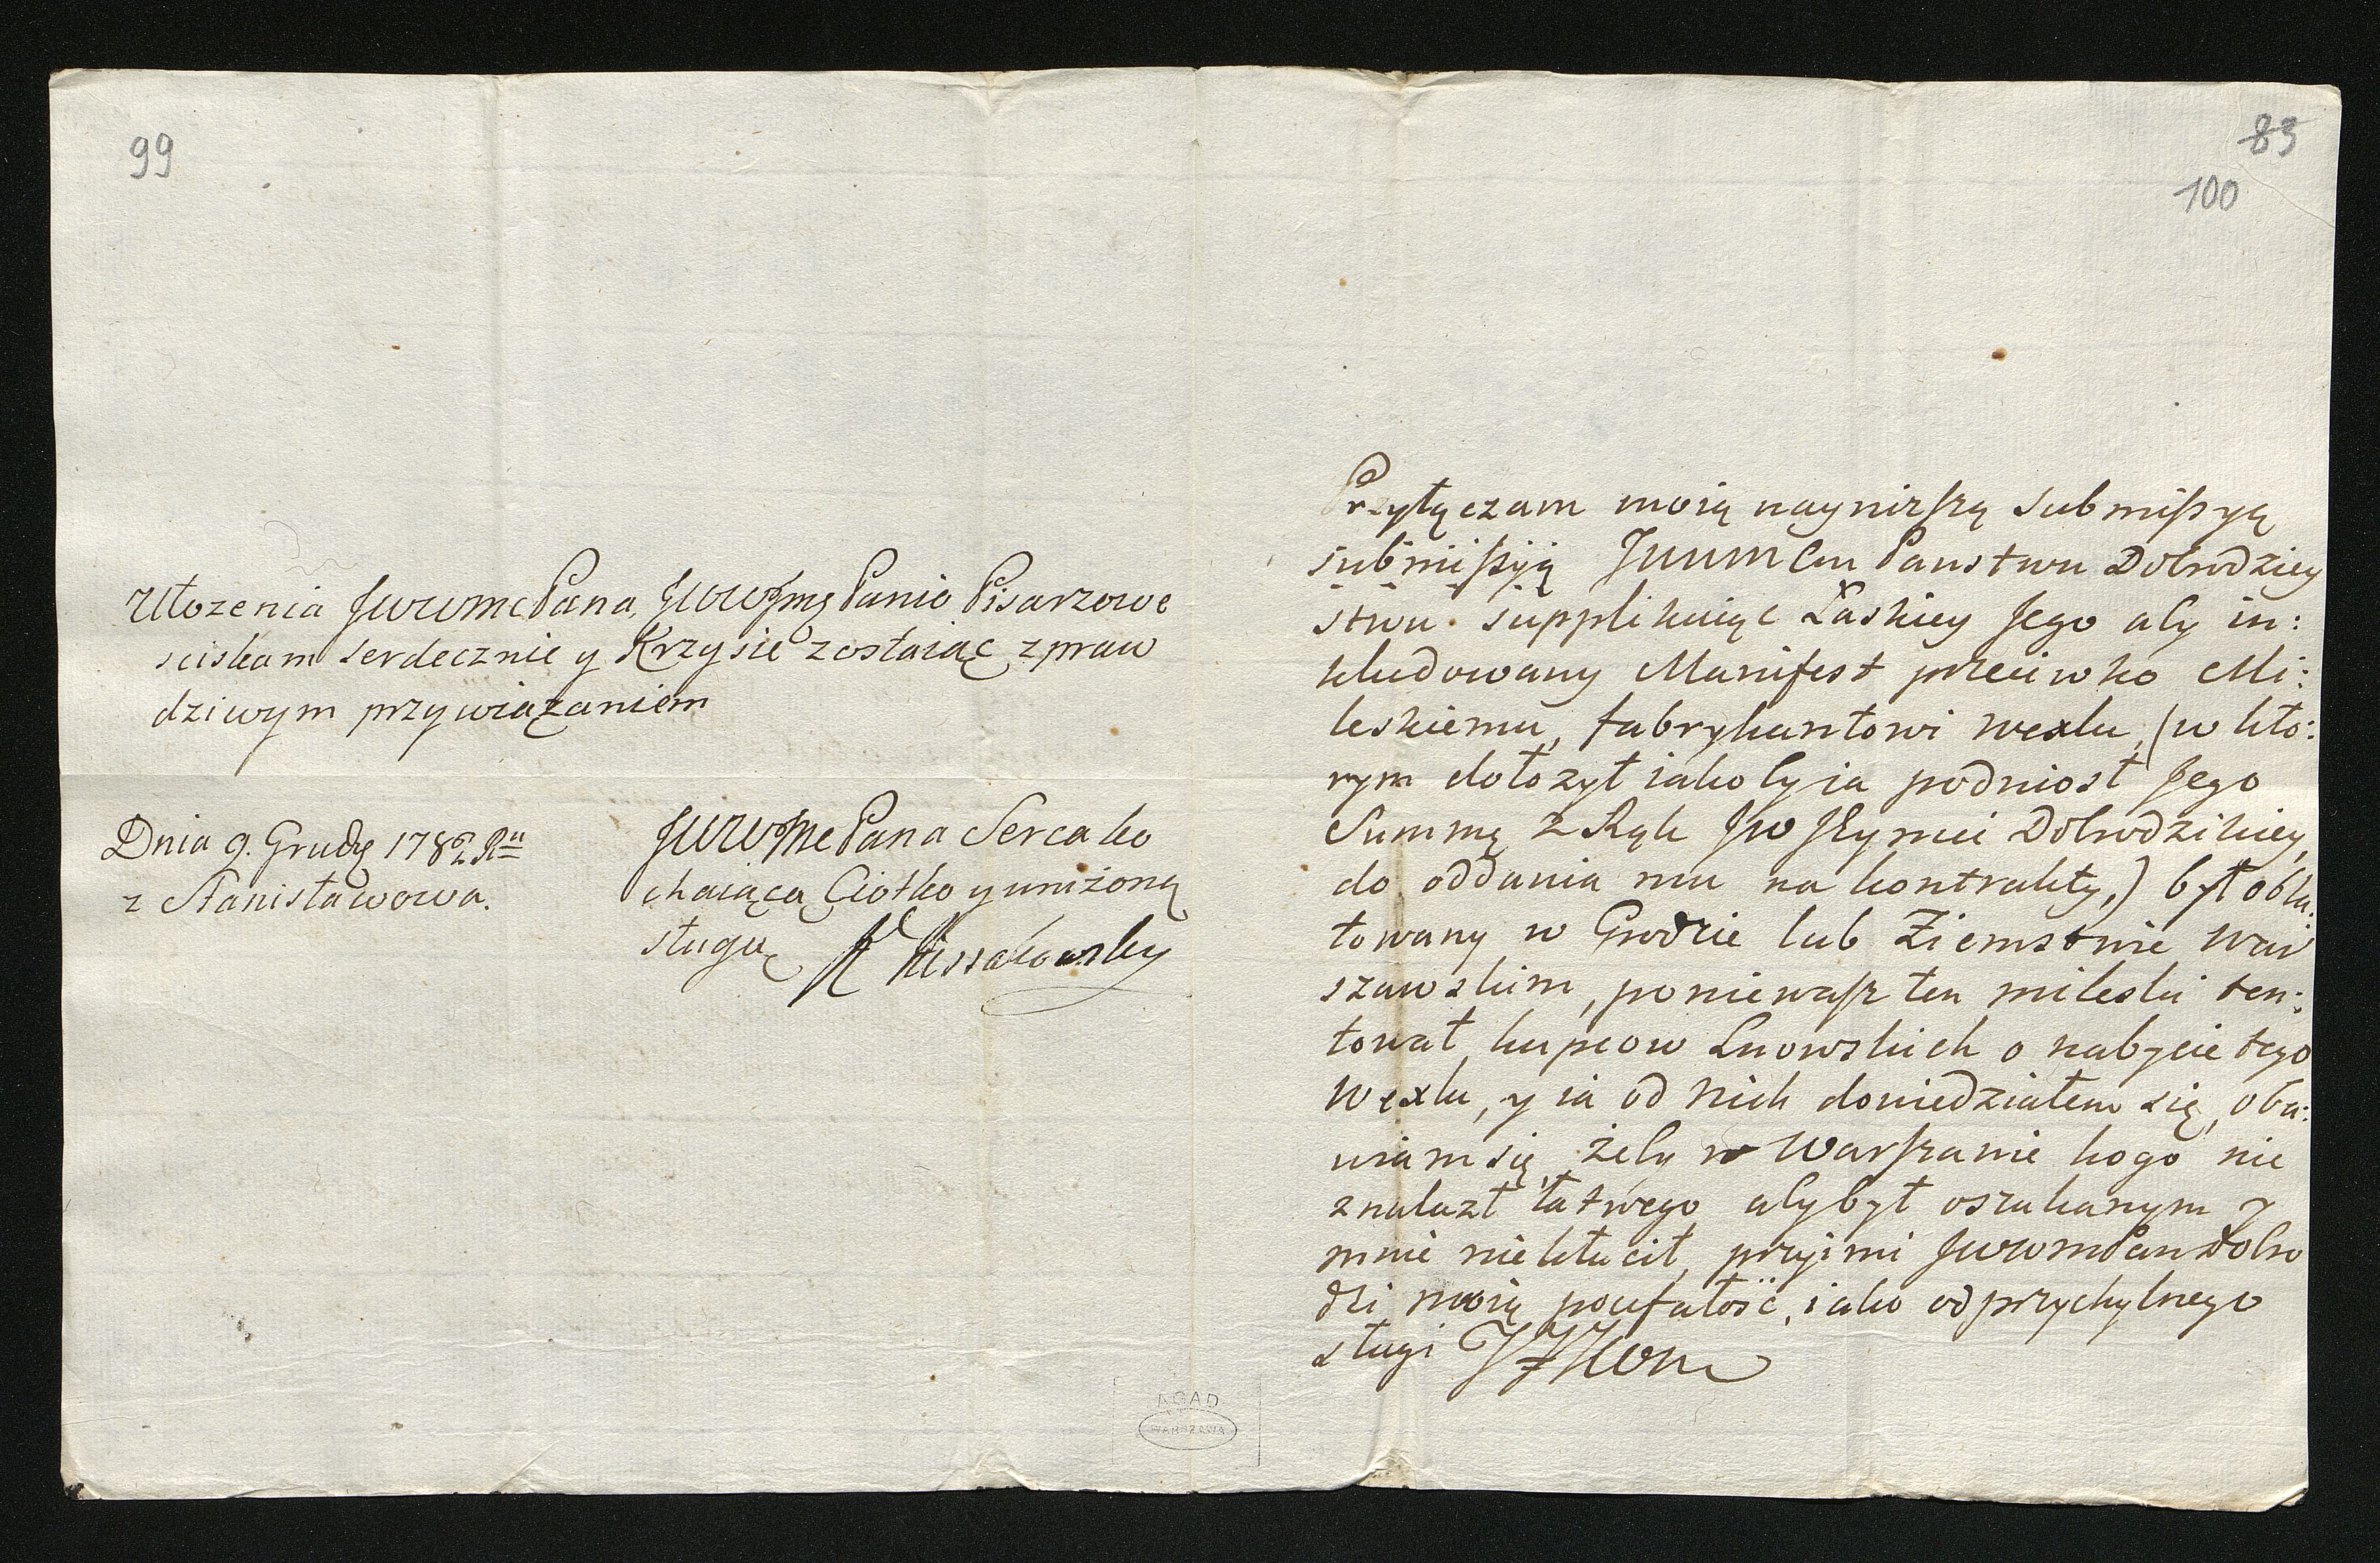 99
Ułozenia JWWMcPana, JWWJmę Panio Pisarzowe
sciskam serdecznie y Krzysie zostaiąc z praw
dziwym przywiązaniem
Dnia 9. Grudę 1782 Ru
z Stanisławowa.
JWWJMc Pana Serca ko
chaiącą Ciotko y unizoną
sługą K Kossakowsky
83
100
Przyłączam moią naynirszą submissyą
submissyją Panstwu Dobrodziey
stwu supplikuiąc Łaskiey Jego aby in:
kludowany Manifest przeciwko Mi:
leskiemu, fabrykantowi wexlu, (w któ:
rym dołozył iakoby ia podniosł Jego
Summę z Rąk Dobrodziki­ey,
do oddania mu na kontrakty,) był obla:
towany w Grodzie lub Ziemstwie War
szawskim, poniewasz ten mileski ten:
tował kupcow Lwowskich o nabycie tego
Wexlu, y ia od nich dowiedziałem się, oba:
wiam się żeby w Warszawie kogo nie
znalazł łatwego aby był oszukanym y
mnie niekłucił, przyimi JWWMPan Dobro
dzi moią poufałość, iako od przychylnego
sługi
AGAD
WARSZAWA